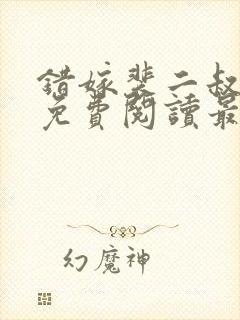 錯嫁裴二叔
免費閱讀最
幻魔神